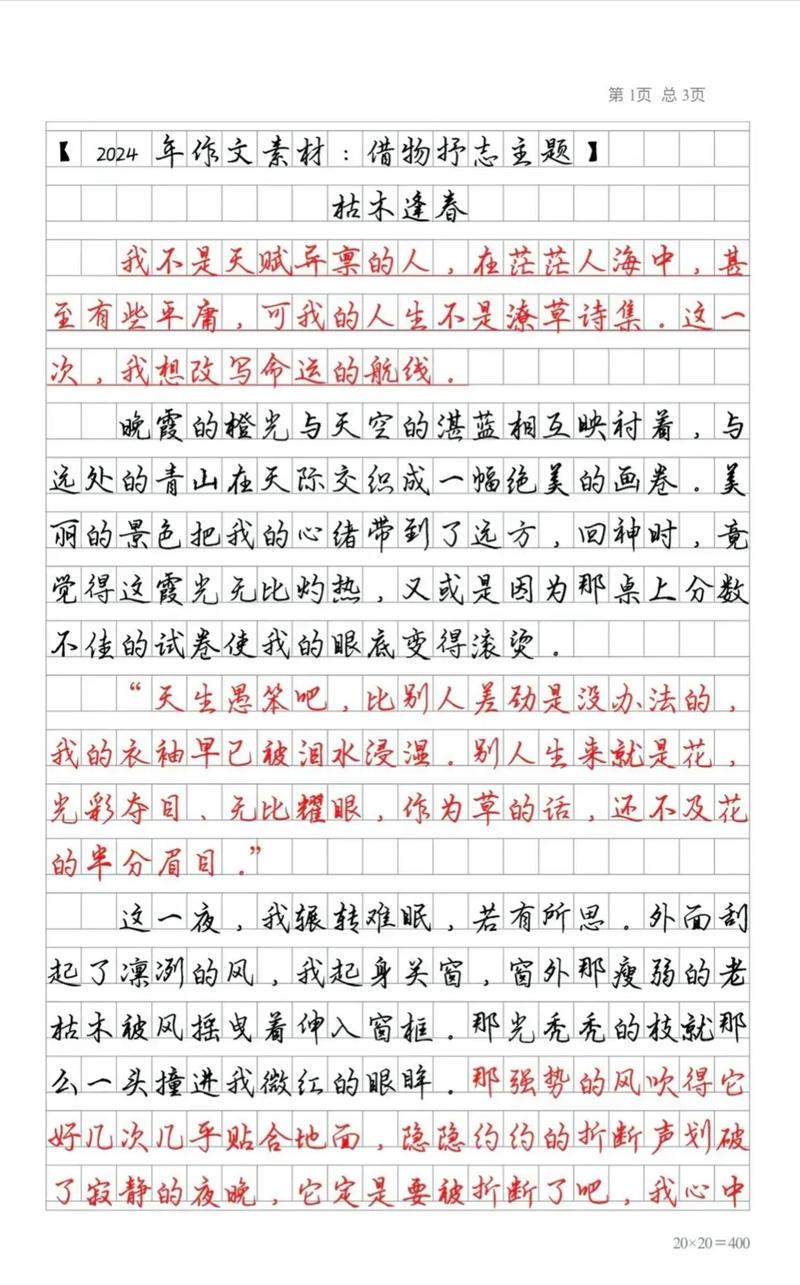 第1页 总3页
【2024年作文素材：借物抒志主题】
枯木逢春
我不是天赋异禀的人，在茫茫人海中，甚
至有些平庸，可我的人生不是潦草诗集。这一
次，我想改写命运的航线。
晚霞的橙光与天空的湛蓝相互映衬着，与
远处的青山在天际交织成一幅绝美的画卷。美
丽的景色把我的心绪带到了远方，回神时，竟
觉得这霞光无比灼热，又或是因为那桌上分数
不佳的试卷使我的眼底变得滚烫。
“天生愚笨吧，比别人差劲是没办法的，
我的衣袖早已被泪水浸湿。别人生来就是花，
光彩夺目、无比耀眼，作为草的话，还不及花
的半分眉目。”
这一夜，我辗转难眠，若有所思。外面刮
起了凛冽的风，我起身关窗，窗外那瘦弱的老
枯木被风摇曳着伸入窗框。那光秃秃的枝就那
么一头撞进我微红的眼眸。那强势的风吹得它
好几次几乎贴合地面，隐隐约约的折断声划破
了寂静的夜晚，它定是要被折断了吧，我心中
20×20=400